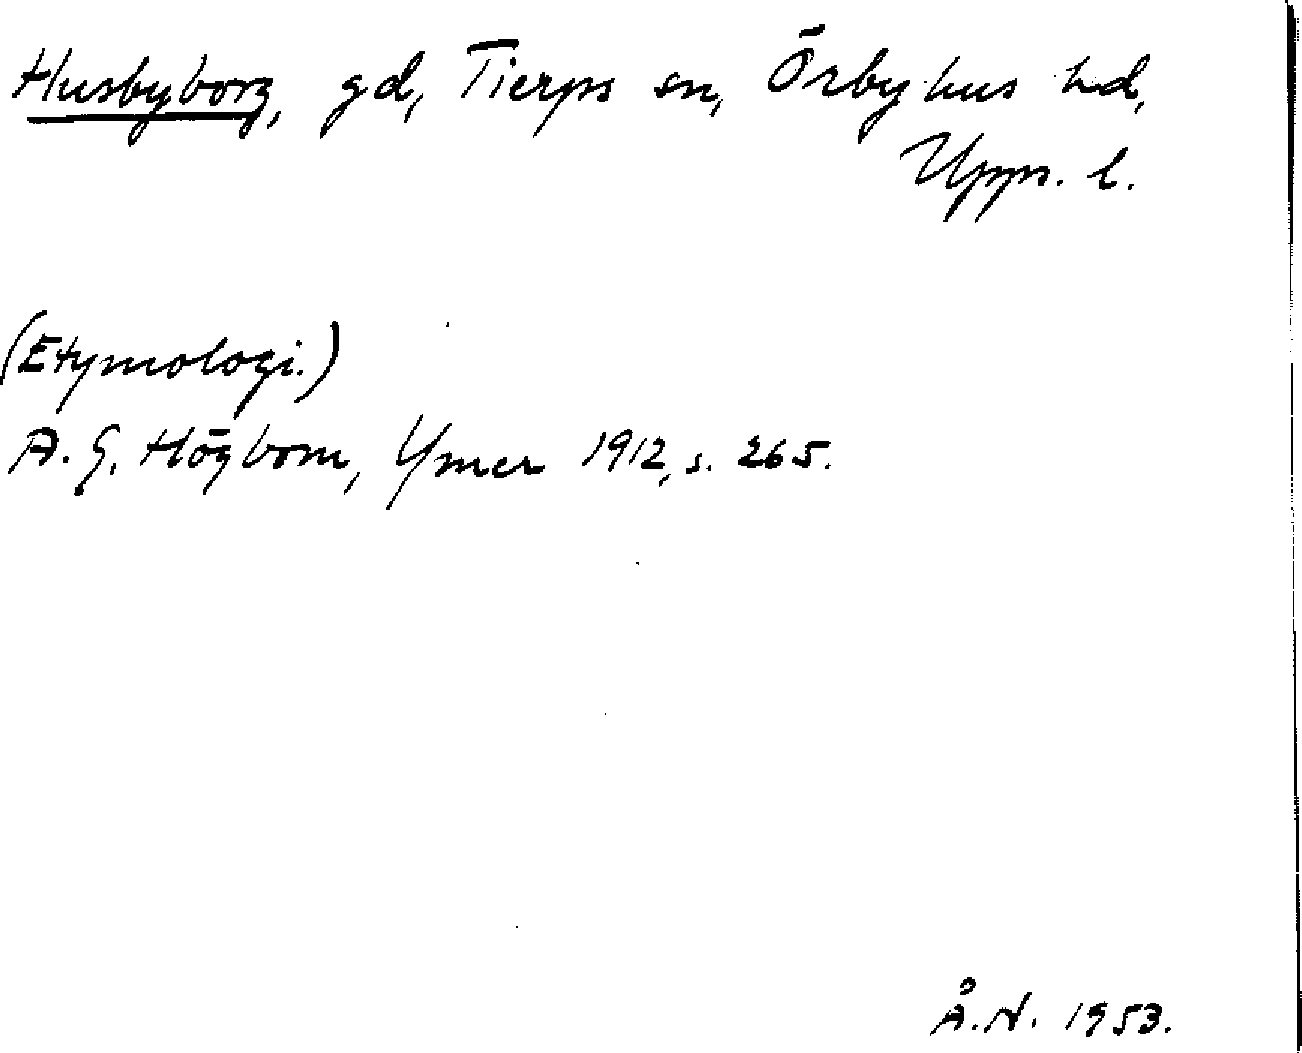 Husbyborg, gd, Tierps sn, Örbyhus hd,
Upps. l.
(Etymologi.)
A. G. Högbom, Ymer 1912, s. 265.
Å.N. 1953.